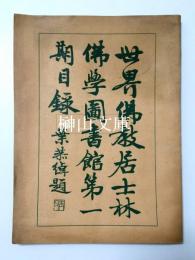 世界佛教居士林
佛學圖書館第一
期目錄 葉恭綽題
榊山文庫